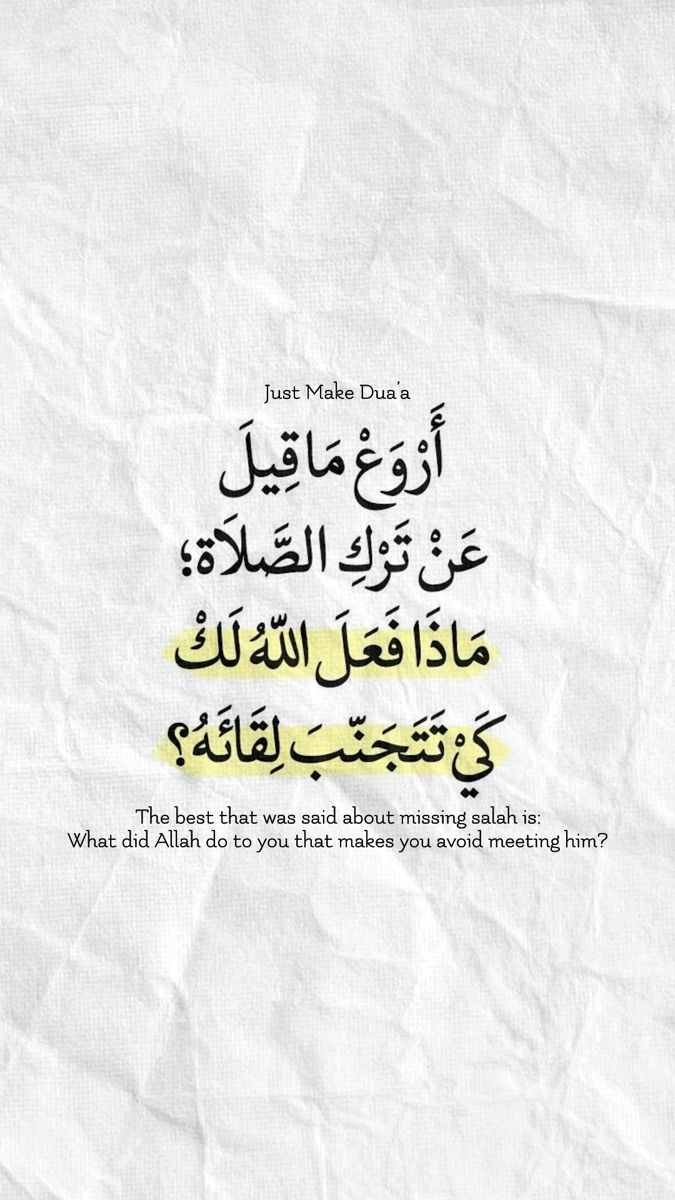 Just Make Dua'a
أَرْوَعْ مَا قِيلَ
عَنْ تَرْكِ الصَّلَاة؛
مَاذَا فَعَلَ اللّٰهُ لَكْ
كَيْ تَتَجَنّبَ لِقَائَهُ؟
The best that was said about missing salah is:
What did Allah do to you that makes you avoid meeting him?